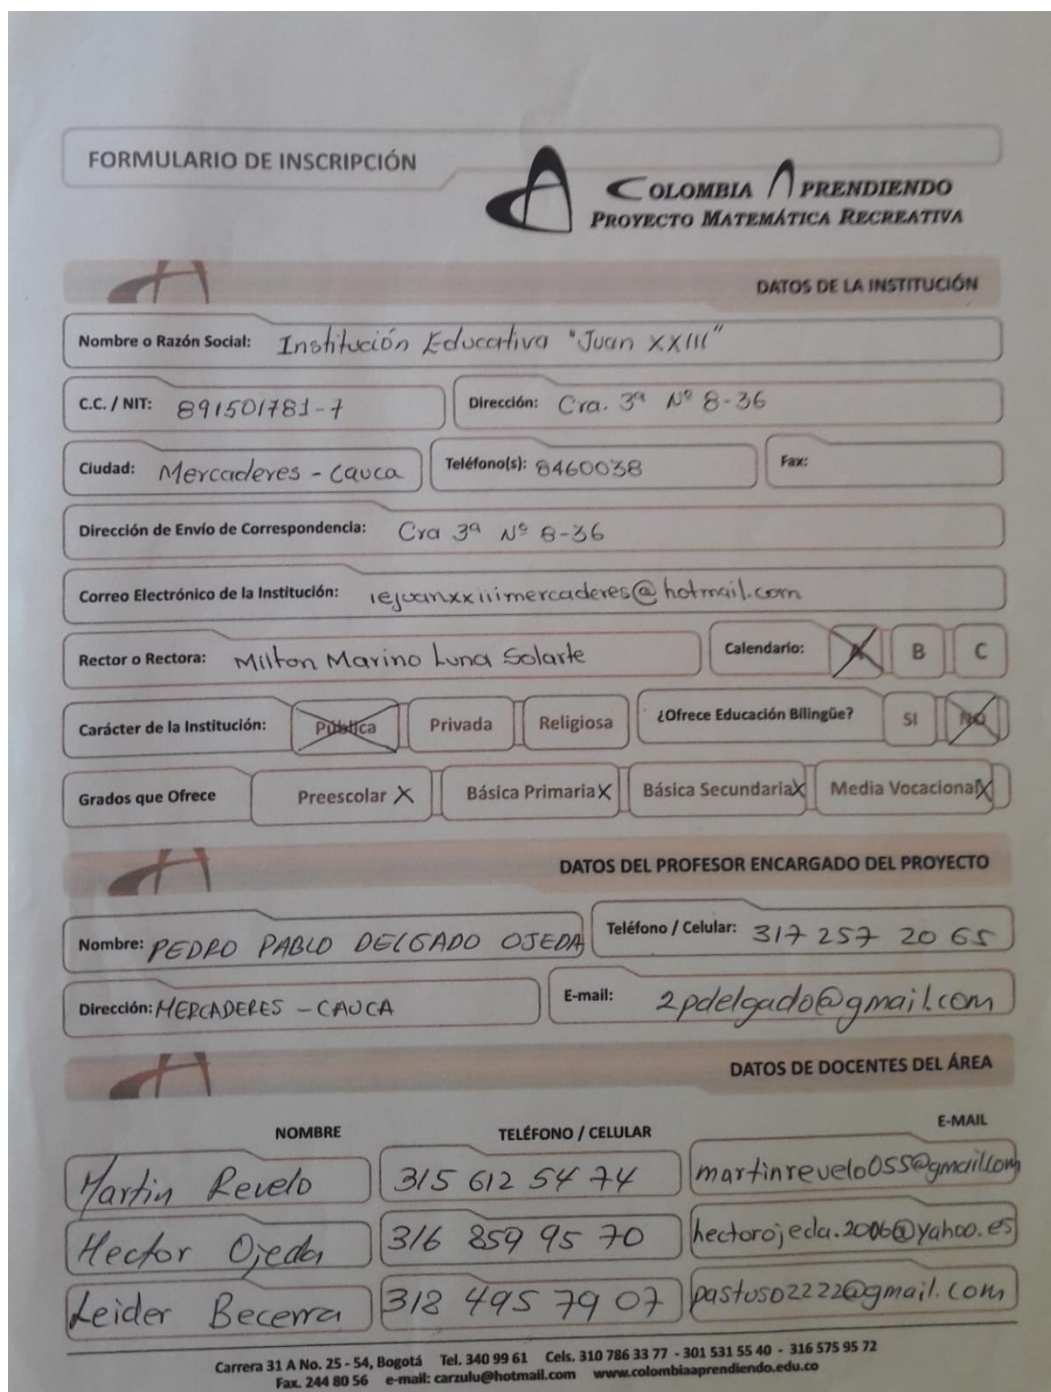 FORMULARIO DE INSCRIPCIÓN
COLOMBIA APRENDIENDO
PROYECTO MATEMÁTICA RECREATIVA
DATOS DE LA INSTITUCIÓN
Nombre o Razón Social: Institución Educativa "Juan XXIII"
C.C. / NIT: 891501781-7 Dirección: Cra. 3ª Nº 8-36
Ciudad: Mercaderes - Cauca Teléfono(s): 8460038 Fax:
Dirección de Envío de Correspondencia: Cra 3ª Nº 8-36
Correo Electrónico de la Institución: iejuanxxiiimercaderes@hotmail.com
Rector o Rectora: Milton Marino Luna Solarte Calendario: A B C
Carácter de la Institución: Pública Privada Religiosa ¿Ofrece Educación Bilingüe? SI NO
Grados que Ofrece Preescolar X Básica Primaria X Básica Secundaria X Media Vocacional X
DATOS DEL PROFESOR ENCARGADO DEL PROYECTO
Nombre: PEDRO PABLO DELGADO OJEDA Teléfono / Celular: 317 257 20 65
Dirección: MERCADERES - CAUCA E-mail: 2pdelgado@gmail.com
DATOS DE DOCENTES DEL ÁREA
NOMBRE TELÉFONO / CELULAR E-MAIL
Martin Revelo 315 612 54 74 martinrevelo055@gmail.com
Hector Ojeda 316 859 95 70 hectorojeda.2006@yahoo.es
Leider Becerra 318 495 79 07 pastuso2222@gmail.com
Carrera 31 A No. 25 - 54, Bogotá Tel. 340 99 61 Cels. 310 786 33 77 - 301 531 55 40 - 316 575 95 72
Fax. 244 80 56 e-mail: carzulu@hotmail.com www.colombiaaprendiendo.edu.co